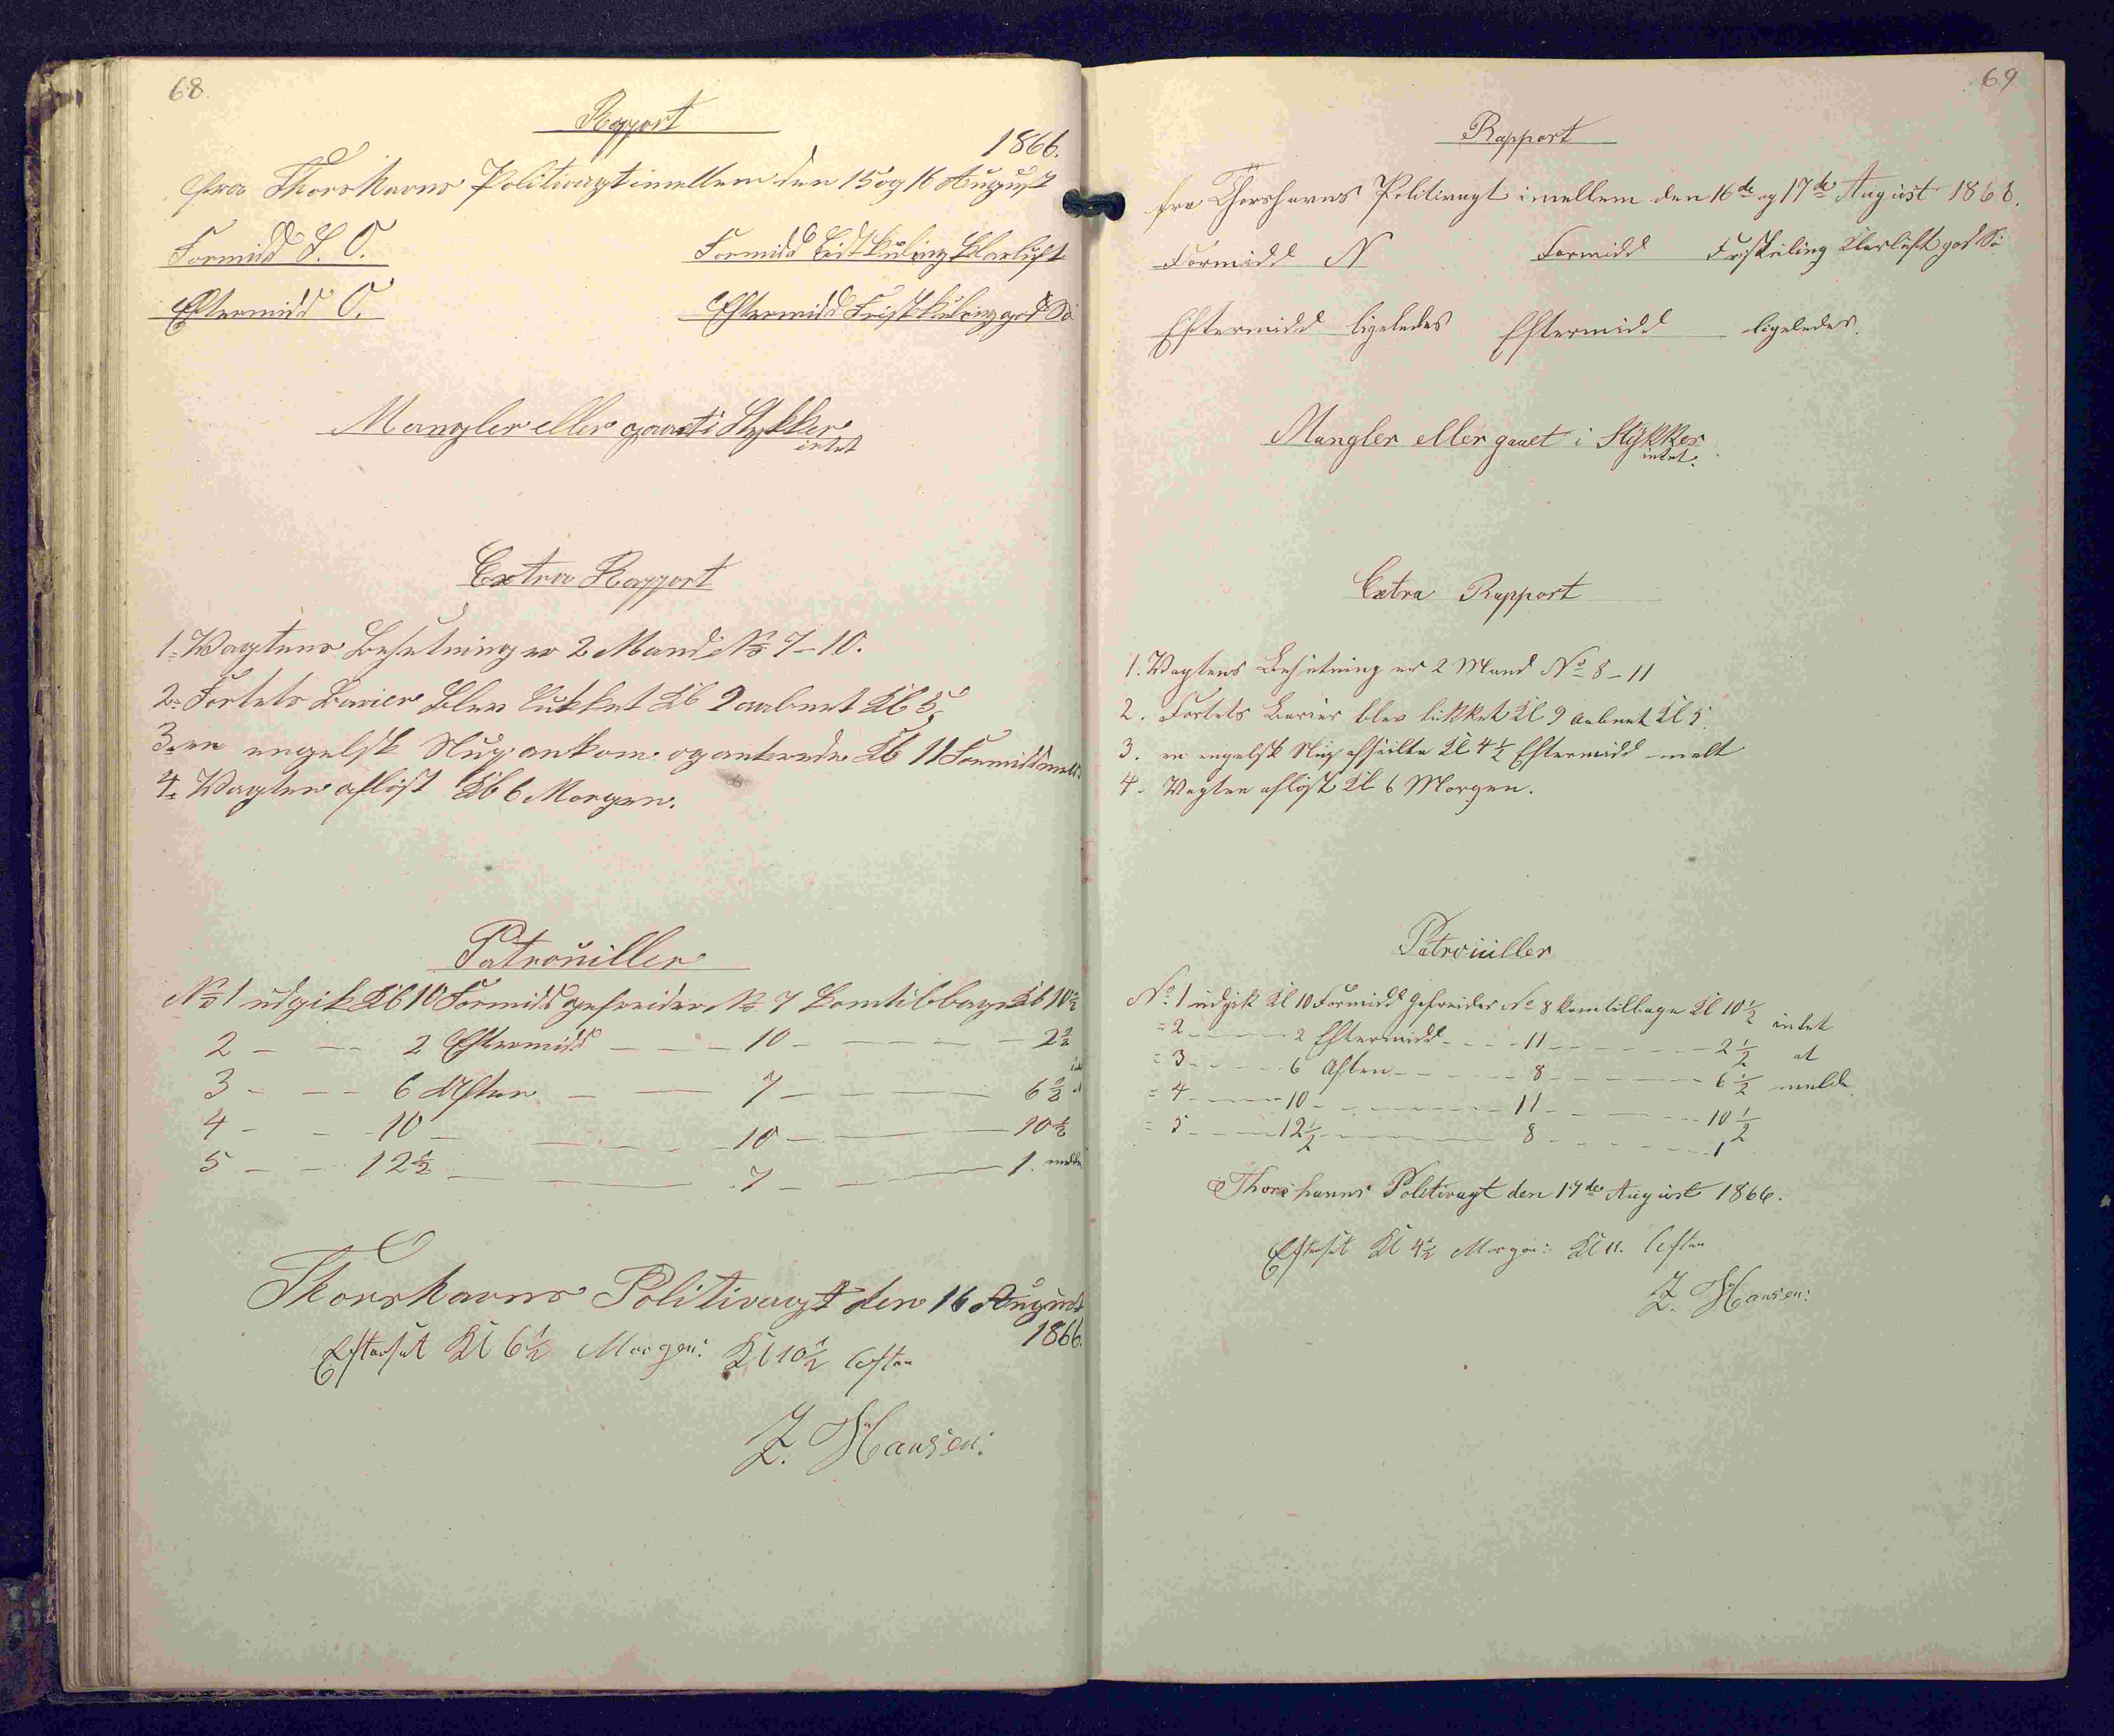 68
Rapport
1866.
fra Thorshavns Politivagt imellem den 15 og 16 August
Formidd S. O. Formidd Lidt Kuling Klarluft
Eftermidd O. Eftermidd Frisk Kuling god Sö
Mangler eller gaaet i Stykker
intet
Extra Rapport
1. Vagtens Besetning er 2 Mand No 7 - 10.
2. Fortets Barier blev lukket Kl 9 aabnet Kl 5,
3. en engelsk Slup ankom og ankrede Kl 11 Formidd meldt
4. Vagten aflöst Kl 6 Morgen.
Patrouiller
No 1 udgik Kl 10 Formidd gefreider No 7 kom tilbage Kl 10½
2 - - 2 Eftermidd - - - 10 - - - 2½
3 - - - 6 Aften - - 7 - - - 6½
4 - - - 10 - - - - 10 - - 10½
5 - - 12½ - - - 7 - - 1. melde
Thorshavns Politivagt den 16 August
1866.
Efterset Kl 6½ Morgen: Kl 10½ Aften
Z. Hansen:
69
Rapport
fra Thorshavns Politivagt imellem den 16de og 17de August 1866.
Formidd N Formidd Frisk Kuling Klarluft god Sö
Eftermidd ligeledes Eftermidd ligeledes
Mangler eller gaaet i Stykker
intet.
Extra Rapport
1. Vagtens Besetning er 2 Mand No 8 - 11
2. Fortets Barier blev lukket Kl 9 aabnet Kl 5.
3. en engelsk Slup afseilte Kl 4½ Eftermidd - melt
4. Vagten aflöst Kl 6 Morgen.
Patrouiller
No. 1 udgik Kl 10 Formidd Gefreider No 8 kom tilbage Kl 10½ intet
= 2 - - - 2 Eftermidd - - - 11 - - - 2½ at
= 3 - - - 6 Aften - - - 8 - - - 6½ melde.
= 4 - - - 10 - - - 11 - - - 10½
= 5 - - - 12½ - - - 8 - - - 1
Thorshavns Politivagt den 17de August 1866.
Efterset Kl 4½ Morgen: Kl 11. Aften
Z. Hansen: